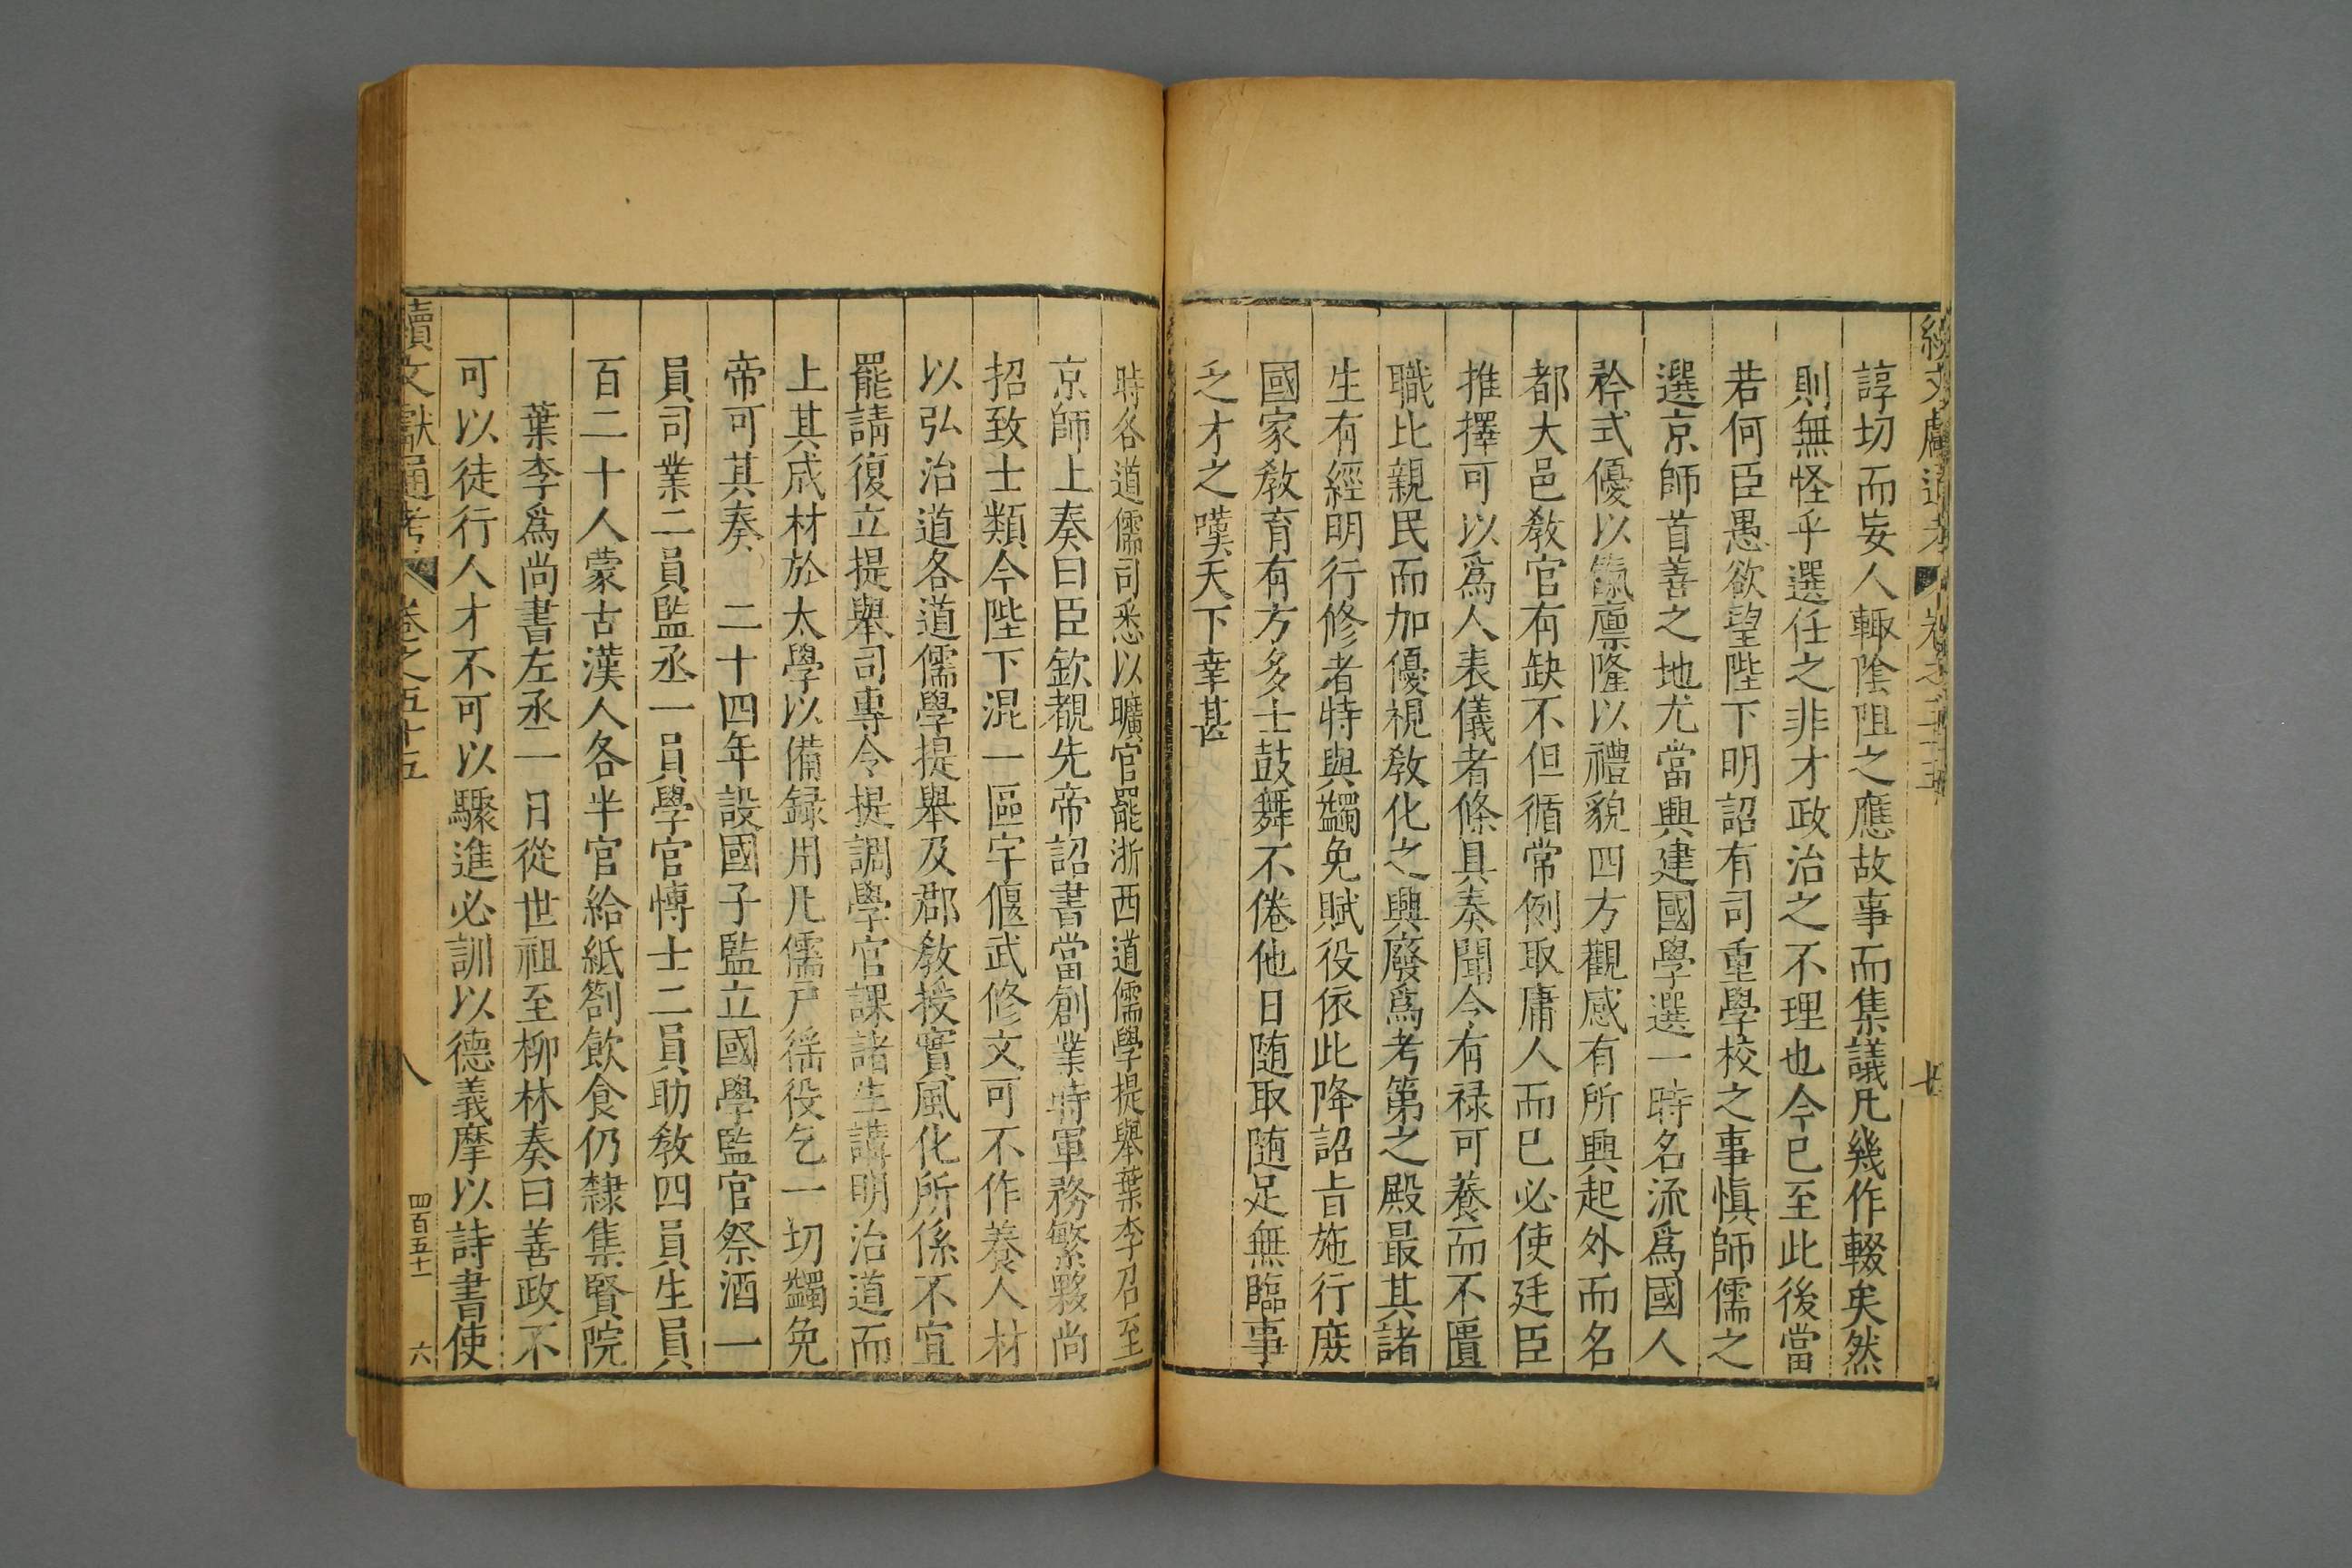 諄切而妄人輙陰阻之應故事而集議凡幾作輟矣然
則無怪乎選任之非才政治之不理也今已至此後當
若何臣愚欲望陛下明詔有司重學校之事愼師儒之
選京師首善之地尤當興建國學選一時名流爲國人
矜式優以餼廪隆以禮貌四方觀感有所興起外而名
都大邑敎官有缺不但循常例取庸人而已必使廷臣
推擇可以爲人表儀者條具奏聞今有禄可養而不匱
職比親民而加優視敎化之興廢爲考第之殿最其諸
生有經明行修者特與蠲免賦役依此降詔旨施行庻
國家敎育有方多士鼓舞不倦他日随取随足無臨事
乏才之嘆天下幸甚
時各道儒司悉以曠官罷浙西道儒學提舉葉李召至
京師上奏曰臣欽覩先帝詔書當創業時軍務繁夥尚
招致士類今陛下混一區宇偃武修文可不作養人材
以弘治道各道儒學提舉及郡敎授實風化所係不宜
罷請復立提舉司專令提調學官課諸生講明治道而
上其成材於太學以備録用凡儒戸徭役乞一切蠲免
帝可其奏 二十四年設國子監立國學監官祭酒一
員司業二員監丞一員學官博士二員助敎四員生員
百二十人蒙古漢人各半官給紙劄飲食仍隸集賢院
葉李爲尚書左丞一日從世祖至柳林奏曰善政不
可以徒行人才不可以驟進必訓以德義摩以詩書使
續文獻通考 卷之五十五 八 四百五十一 六